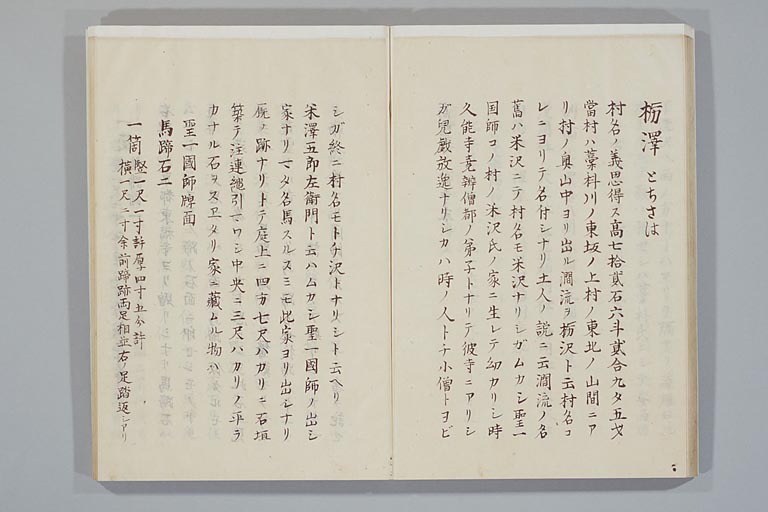 栃澤 とちさは
村名ノ義思得ス高七拾貳石六斗貳合九夕五才
當村ハ藁科川ノ東坂ノ上村ノ東北ノ山間ニア
リ村ノ奥山中ヨリ出ル澗流ヲ栃沢ト云村名コ
レニヨリテ名付シナリ土人ノ説ニ云澗流ノ名
舊ハ米沢ニテ村名モ米沢ナリシガムカシ聖一
国師コノ村ノ米沢氏ノ家ニ生レテ幼カリシ時
久能寺堯辨僧都ノ弟子トナリテ彼寺ニアリシ
ガ児戯放逸ナリシカハ時ノ人トチ小僧トヨビ
シガ終ニ村名モトチ沢トナリシト云ヘリ
米澤五郎左衞門ト云ハムカシ聖一國師ノ出シ
家ナリマタ名馬スルスミモ此家ヨリ出シナリ
廐ノ跡ナリトテ庭上ニ四方七尺ハカリニ石垣
築テ注連繩引マワシ中央ニ三尺ハカリノ平ラ
カナル石ヲスヱタリ家ニ藏ムル物ハ
聖一國師牌面
馬蹄石二
一箇 竪一尺一寸許厚四寸五分許
横一尺二寸余前蹄跡両足相並右ノ足踏返シアリ